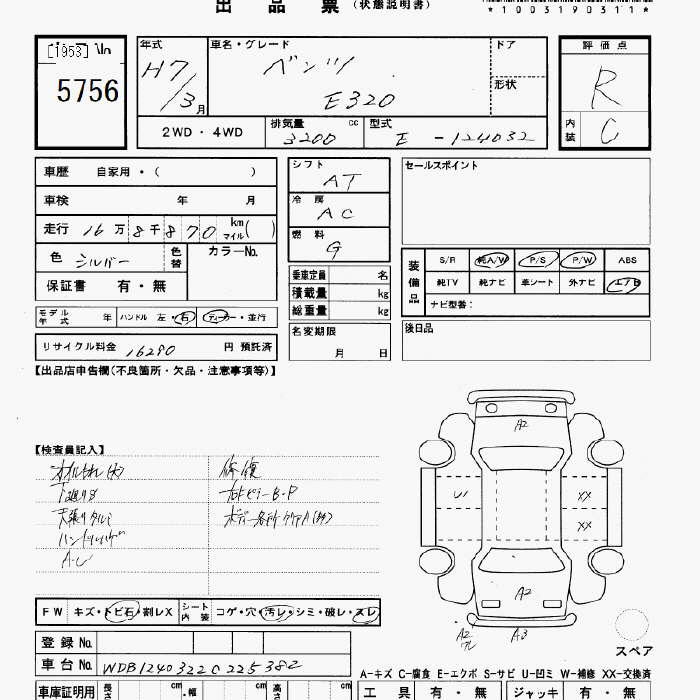 出品票(状態説明書)
*1003190311*
[1953]
5756
年式 H7/3月
車名・グレード ベンツ E320
ドア
形状
評価点 R
内装 C
2WD・4WD
排気量 3200 cc
型式 E-124032
車歴 自家用・( )
車検 年 月
走行 16万8千870 km マイル( )
色 シルバー 色替 カラーNo.
保証書 有・無
シフト AT
冷房 AC
燃料 G
乗車定員 名
積載量 kg
総重量 kg
名変期限 月 日
セールスポイント
装備品 S/R 純A/W P/S P/W ABS
純TV 純ナビ 車シート 外ナビ エアB
ナビ型番:
後日品
モデル年式 年 ハンドル 左・右 ディーラー・並行
リサイクル料金 16290 円 預託済
【出品店申告欄(不良箇所・欠品・注意事項等)】
【検査員記入】
オイルもれ(大) 修復
下廻りS
天張りタルミ
A2
U XX
XX
A2
A2 A3
スペア
FW キズ・トビ石・割レX シート内装 コゲ・穴・汚レ・シミ・破レ・スレ
登録No.
車台No. WDB1240322C225382
A-キズ C-腐食 E-エクボ S-サビ U-凹ミ W-補修 XX-交換済
車庫証明用 長さ cm 幅 cm 高さ cm
工具 有・無 ジャッキ 有・無